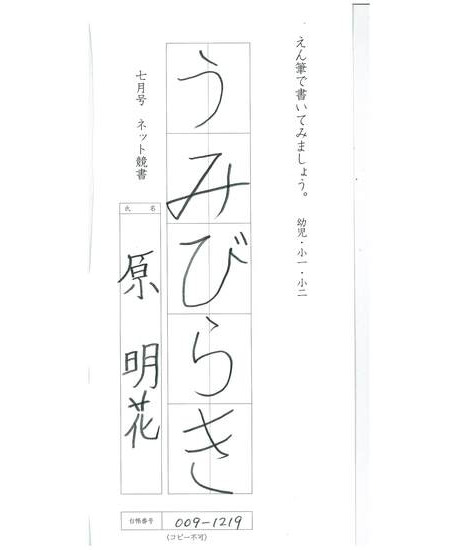 えん筆で書いてみましょう。 幼児・小一・小二
うみびらき
七月号 ネット競書
氏名
原 明花
台帳番号 009-1219
(コピー不可)